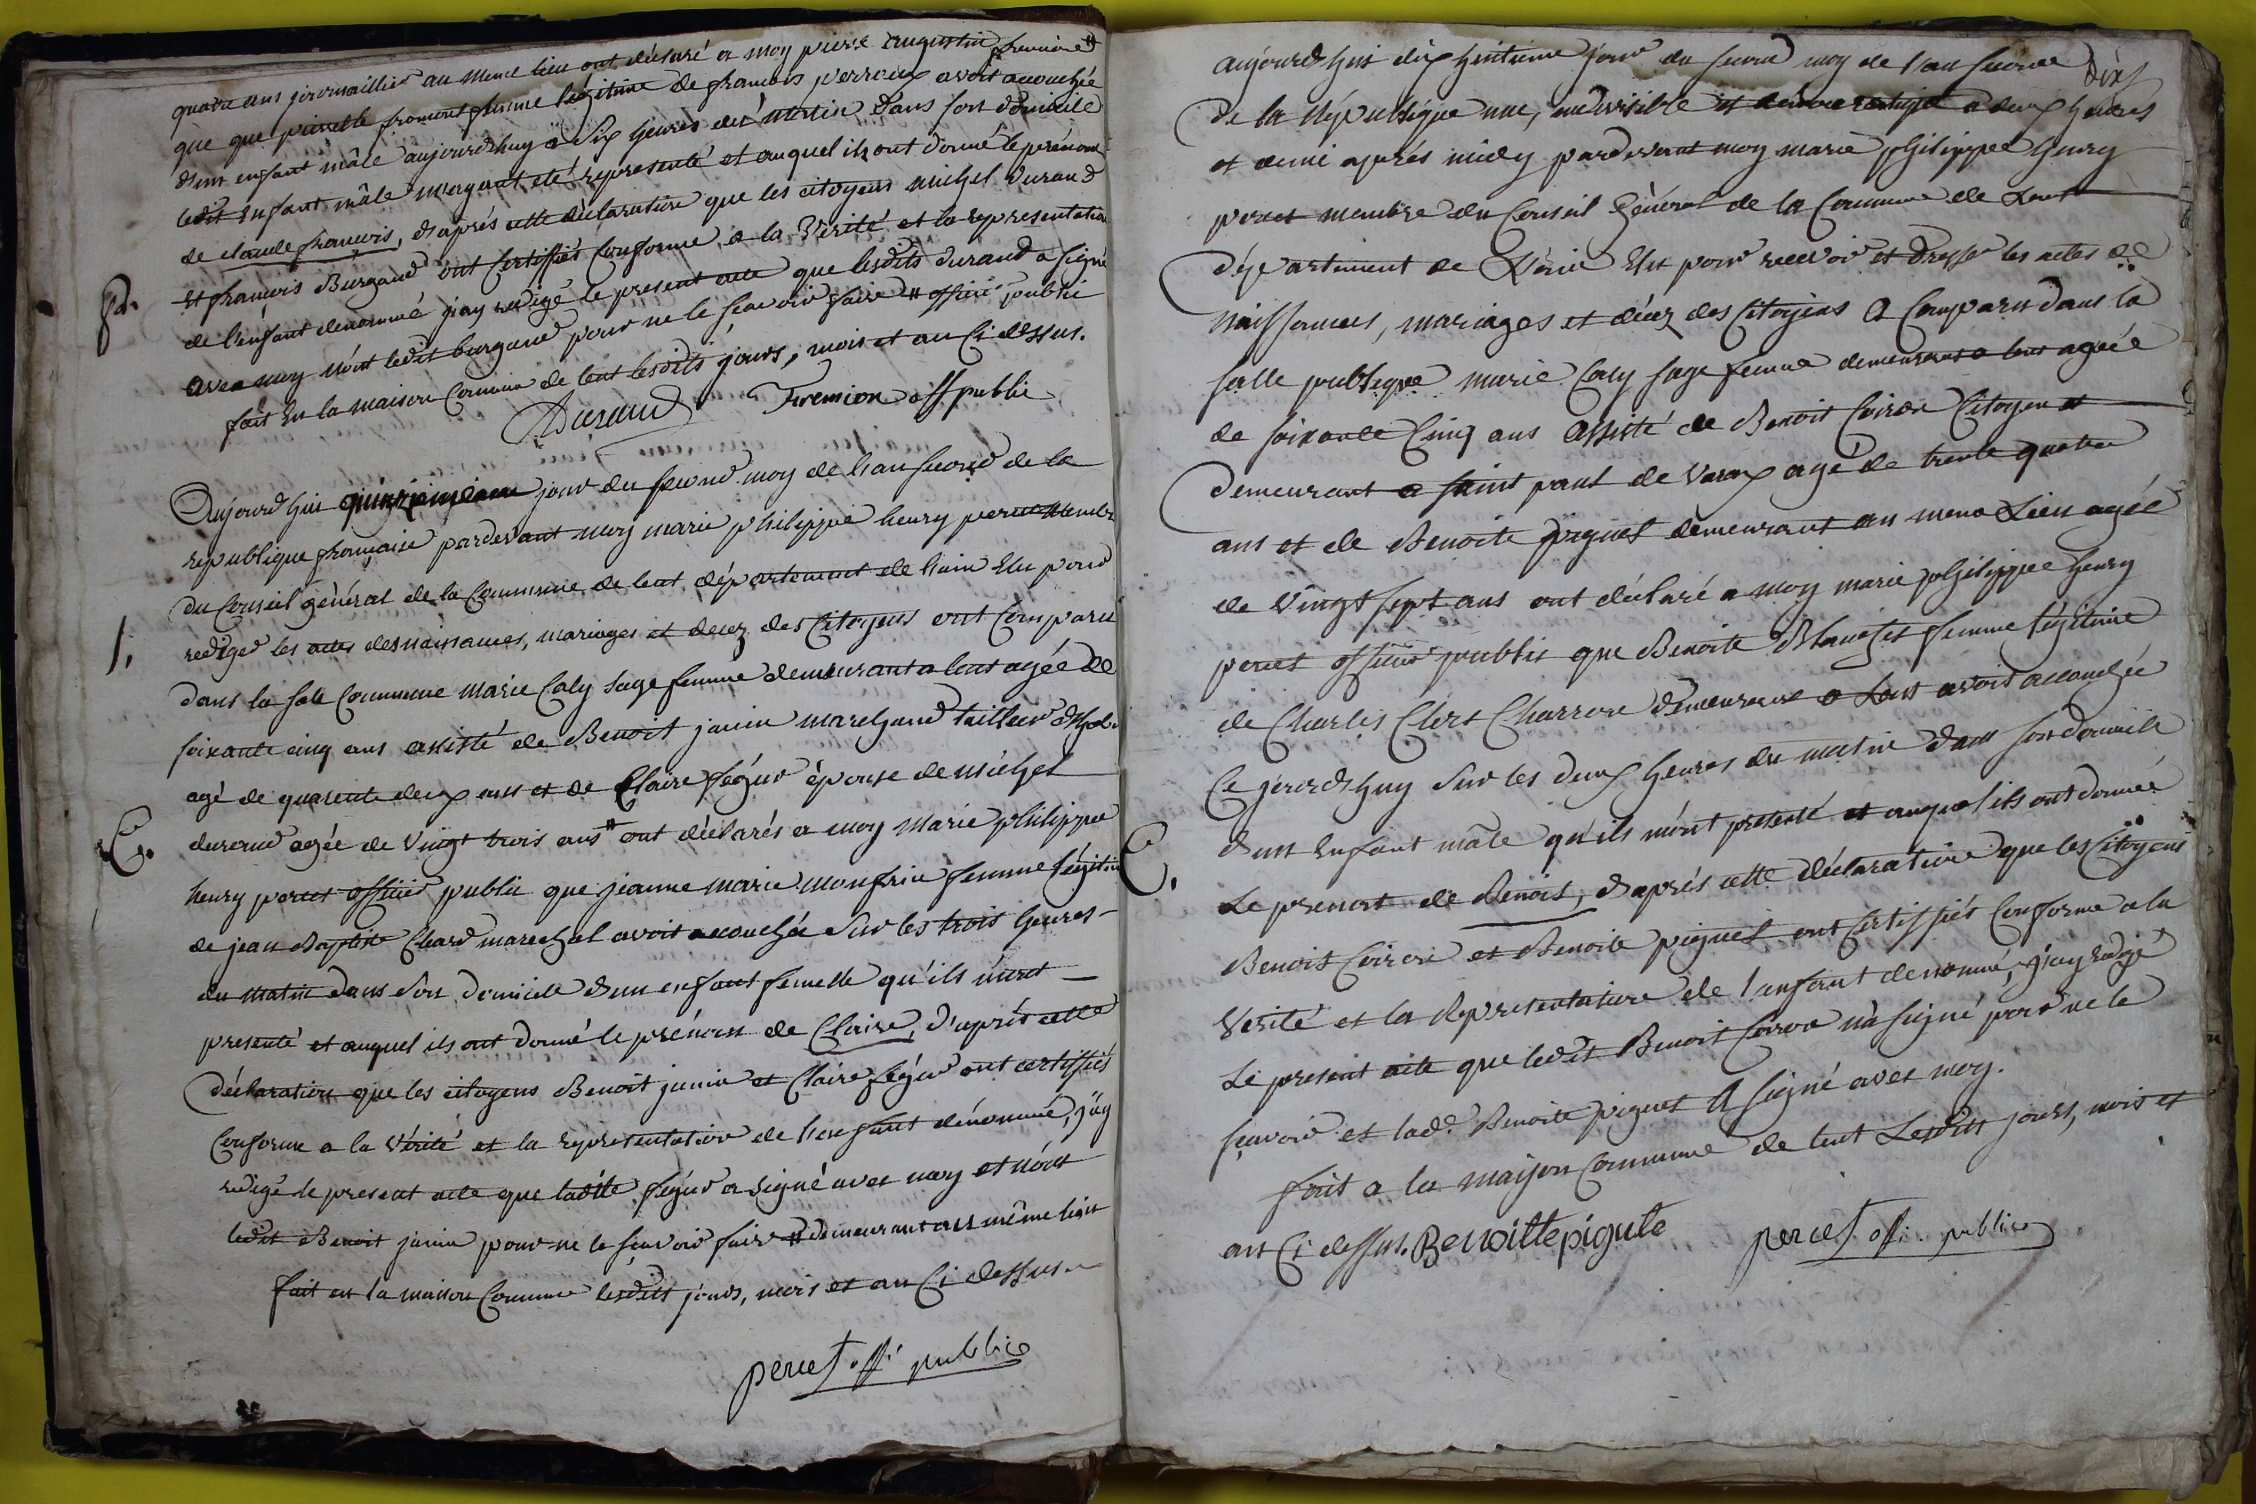 quatre ans journaillier au meme lieu ont déclaré a moy pierre augustin fremion #
que que pierrette fromont femme légitime de francois perroux avoit accouchée
d'un enfant mâle aujourdhuy a six heures du matin dans son domicile
ledit enfant mâle m'ayant été representé et auquel ils ont donné le prénom
de claude francois, d'aprés cette déclaration que les citoyens michel durand
et francois Burgaud ont certiffiés conforme a la vérité et la representation
de l'enfant denommé j'ay redigé le present acte que lesdits durand a signé
avec moy nont ledit burgaud pour ne le scavoir faire # officier public
fait en la maison comune de lent lesdits jours, mois et an ci dessus.
Durand Fremion off public
Aujourd'hui quinzieme jour du second moy de l'an second de la
republique française pardevant moy marie philippe henry percet membre
du Conseil général de la Commune de lent département de l'ain Elu pour
rediger les actes des naissances, mariages et decez des Citoyens ont Comparu
1.
dans la sale Commune marie Caly sage femme demeurant a lent agée de
soixante cinq ans assisté de Benoit janin marchand tailleur d'habi
agé de quarente deux ans et de Claire ségur épouse de michel
durand agée de vingt trois ans # ont déclarés a moy marie philippe
C.
henry percet officier public que jeanne marie monfrin femme légitim
de jean Baptiste Chard marechal avoit accouchée sur les trois heures
du matin dans son domicile d'un enfant femelle qu'ils m'ont
presenté et auquel ils ont donné le prénom de Claire, d'aprés cette
déclaration que les citoyens Benoit janin et Claire ségur ont certiffiés
Conforme a la vérité et la representation de l'enfant dénommé, j'ay
redigé le present acte que ladite ségur a signé avec moy et nont
ledit Benoit janin pour ne le scavoir faire # demeurant au même lieu
fait en la maison Commune lesdits jours, mois et an Ci dessus
percet offi public
dix
aujourd'hui dix huitieme jour du second moy de l'an second
de la république une, indivisible a deux heures
et demi aprés midy pardevant moy marie philippe henry
percet membre du Conseil général de la Commune de Lent
département de L'ain Elu pour recevoir et dresser les actes de
naissances, mariages et décez des Citoyens a Comparu dans la
salle publique marie Caly sage femme demeurant a lent agée
de soixante Cinq ans assisté de Benoit Coiron Citoyen
demeurant a saint paul de varax agé de trente quatre
ans et de Benoite piguet demeurant au meme Lieu agée
de vingt sept ans ont déclaré a moy marie philippe henry
percet officier public que Benoite Blanchet femme légitime
de Charles Clert Charron demeurant a Lent avoit accouchée
Ce jourdhuy sur les deux heures du matin dans son domicile
C.
d'un enfant mâle qu'ils m'ont presenté et auquel ils ont donné
Le prenom de Benoit, d'aprés cette déclaration que les Citoyens
Benoit Coiron et Benoite piguet ont Certiffiés Conforme a la
vérité et la representation de l'enfant denommé, j'ay redigé
Le present acte que ledit Benoit Coiron n'a signé pour ne le
scavoir et lade Benoite piguet A signé avec moy.
fait a la maison Commune de lent Lesdits jours, mois et
an Ci dessus. Benoitte pigute percet offi public